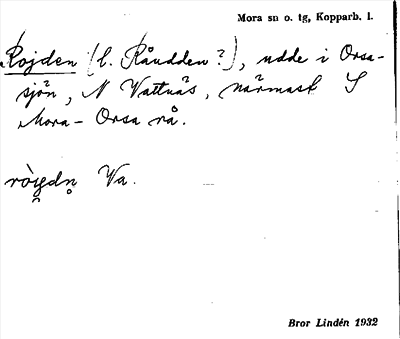 Mora sn o. tg, Kopparb. l.
Rojden (l. Råudden?), udde i Orsa-
sjön, N Vattnäs, närmast S
Mora-Orsa rå.
Va.
Bror Lindén 1932